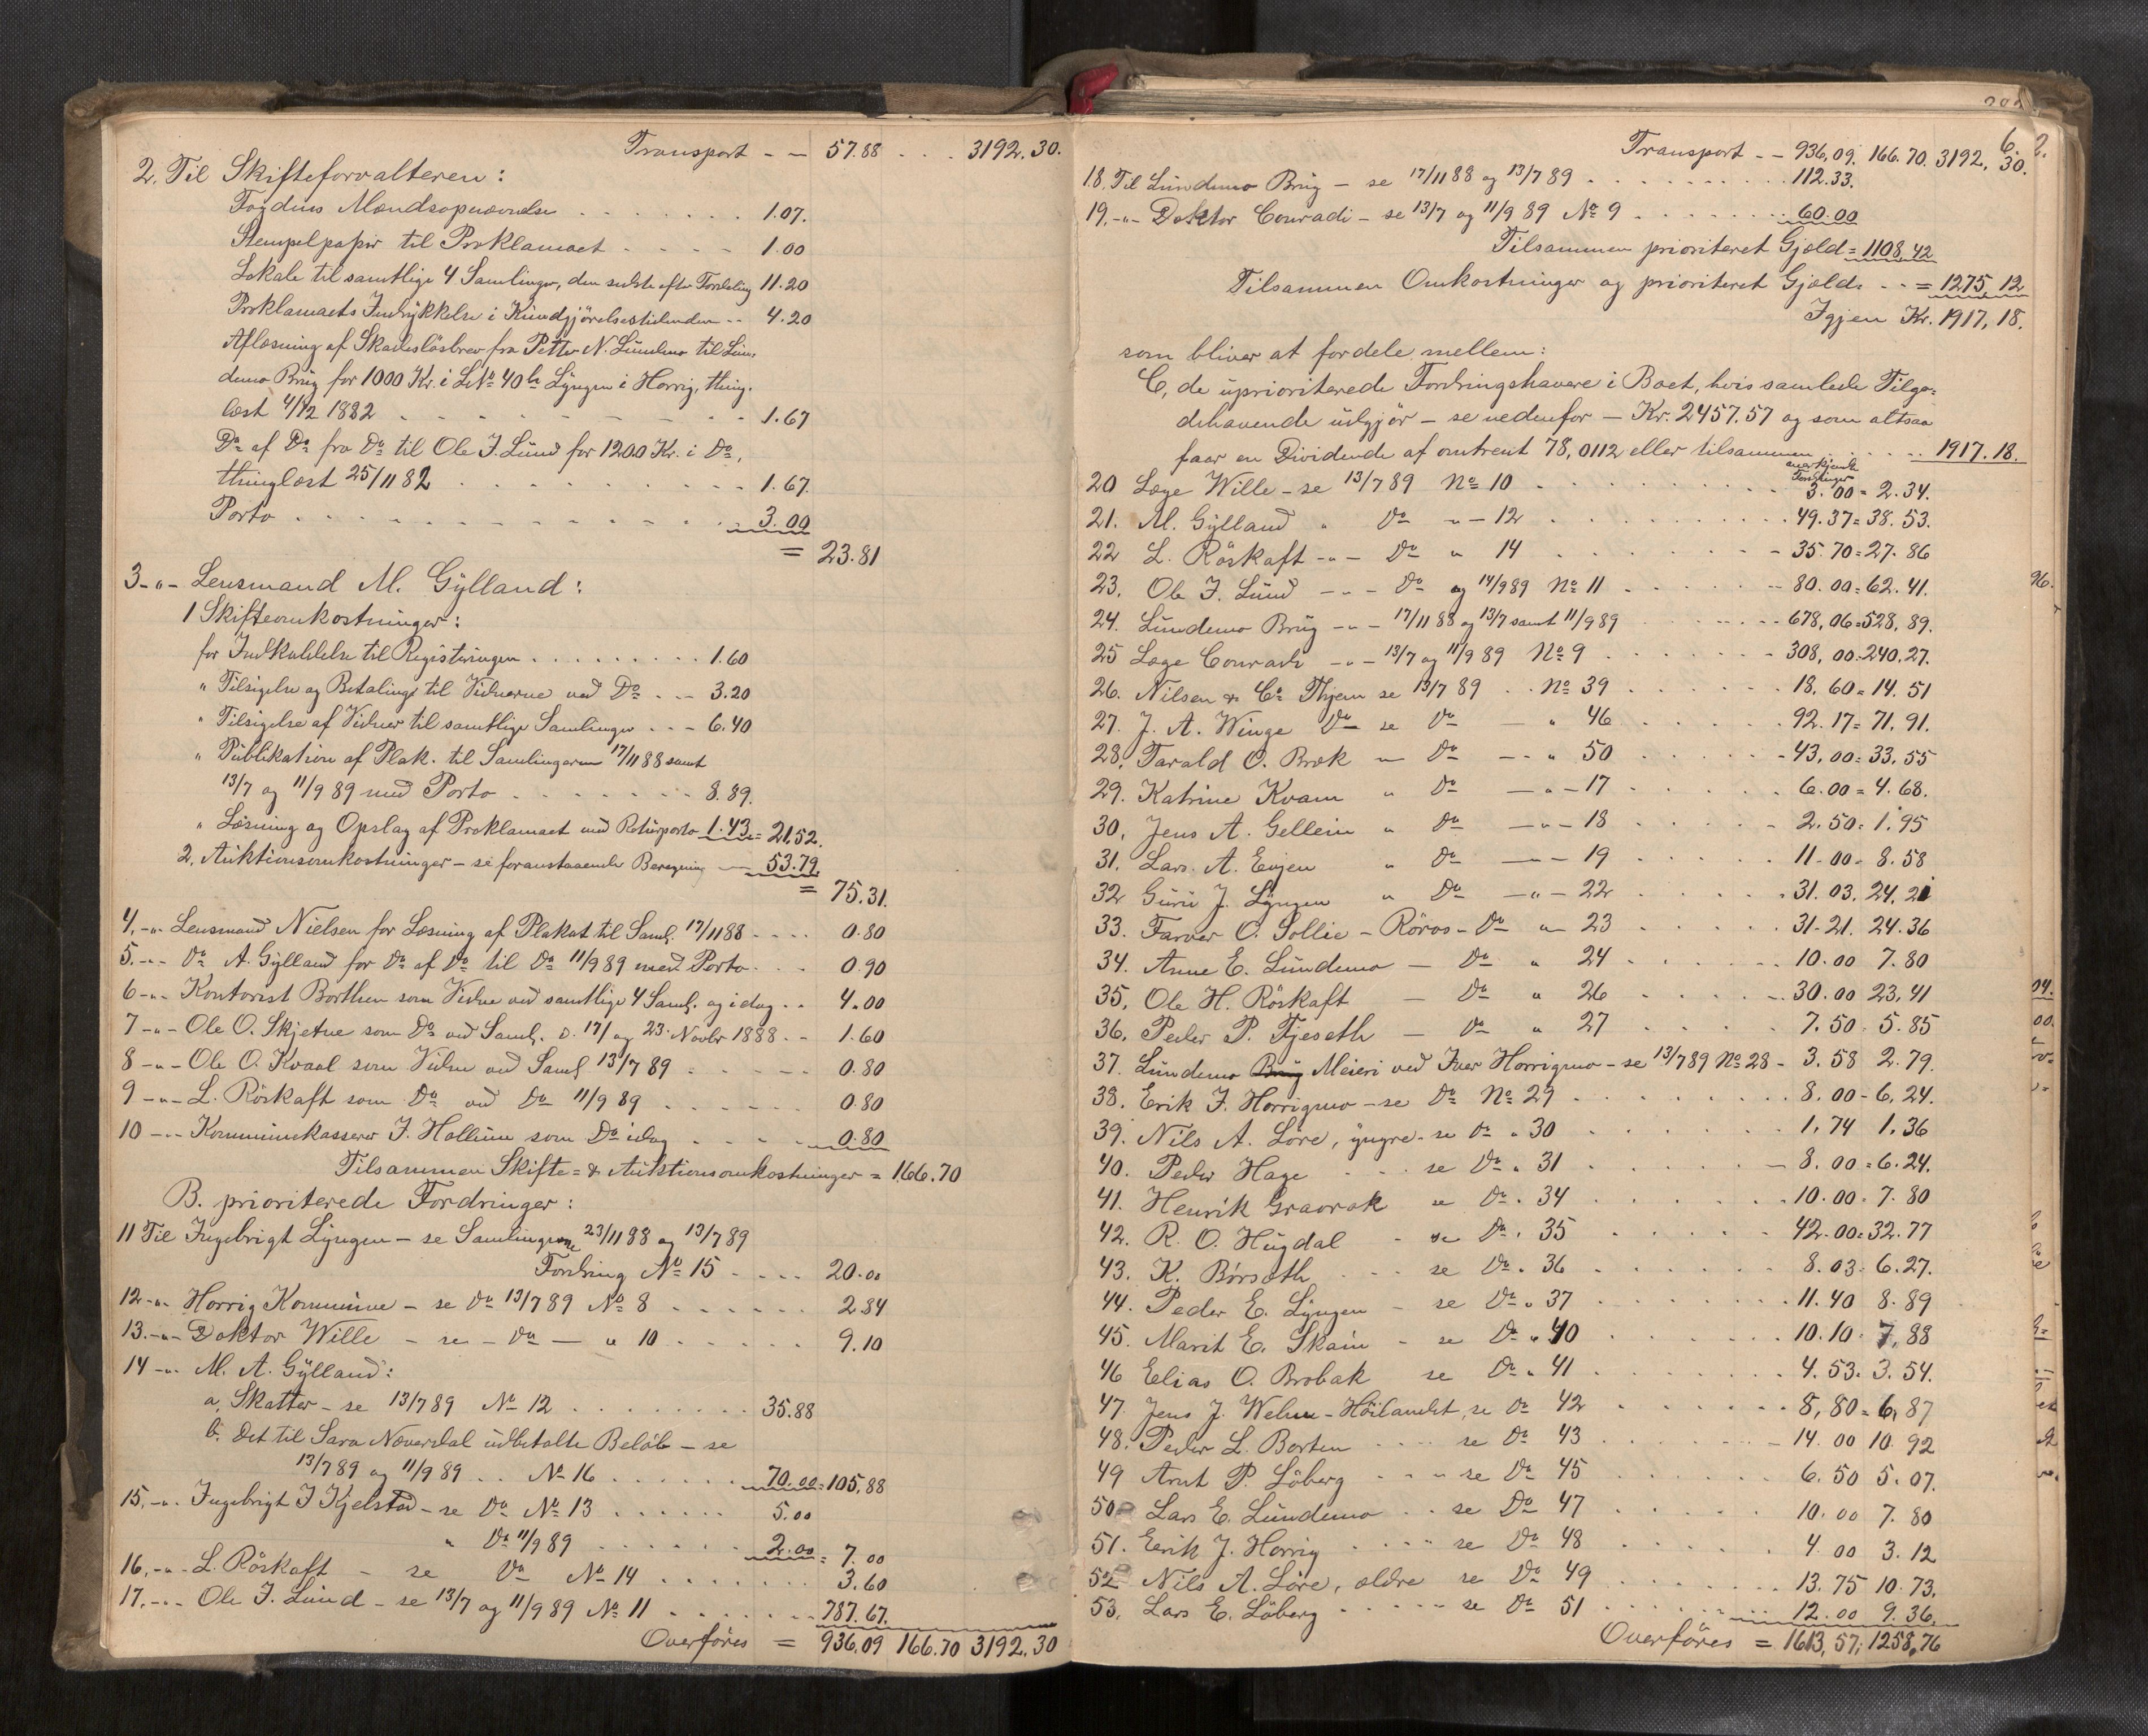 Transport - - 57.88 . . . 3192.30.
2. Til Skifteforvalteren:
Fogdens Mændsopnævnelse . . . . . . . 1.07.
Stempelpapir til Proklamaet . . . . . 1.00
Lokale til samtlige 4 Samlinger, den sidste efter Fordeling 11.20
Proklamaets Indrykkelse i Kundgjörelsestidenden . . 4.20
Aflæsning af Skadeslösbrev fra Petter N. Lundemo til Lün-
demo Brüg for 1000 Kr. i LNo 40 Lÿngen i Horrig, thing-
læst 4/12 1882 . . . . . . . . 1.67
Do af Do fra Do til Ole J. Lund for 1200 Kr. i Do,
thinglæst 25/11 82 . . . . . . . . 1.67.
Porto . . . . . . . . . . . . 3.00
= 23.81
3 -"- Lensmand M. Gÿlland:
1 Skifteomkostninger:
for Indkaldelse til Registeringen . . . . . . . . 1.60
" Tilsigelse og Betaling til Vidnerne ved Do . . - 3.20
" Tilsigelse af Vidner til samtlige Samlinger . . - 6.40
" Publikation af Plak. til Samlingerne 17/11 88 samt
13/7 og 11/9 89 med Porto . . . . . . . 8.89.
" Læsning og Opslag af Proklamaet med Returporto 1.43 = 21.52.
2. Auktionsomkostninger - se foranstaaende Beregning - 53.79
= 75.31.
4. -"- Lensmand Nielsen for Læsning af Plakat til Saml. 17/11 88 . . . . 0.80
5. -"- Do A. Gÿlland for Do af Do til Do 11/9 89 med Porto . . . 0.90
6 -"- Kontorist Borthen som Vidne ved samtlige 4 Saml. og idag . . 4.00
7 -"- Ole O. Skjetne som Do ved Saml. d. 17/ og 23. Novbr 1888 . . 1.60
8 -"- Ole O. Kvaal som Vidne ved Saml 13/7 89 . . . . . 0.80
9 -"- L. Röskaft som Do ved Do 11/9 89 . . . . . . 0.80
10 -"- Kommunekasserer J. Hollum som Do idag . . . . . 0.80
Tilsammen Skifte= & Auktionsomkostninger = 166.70
B. prioriterede Fordringer:
11 Til Ingebrigt Lÿngen - se Samlingerne 23/11 88 og 13/7 89
Fordring No 15 . . . . 20.00
12 -"- Horrig Kommune - se Do 13/7 89 No 8 . . . . . . 2.84
13. -"- Doktor Wille - se - Do - " 10 . . . . . . 9.10
14 -"- M. A. Gÿlland:
a, Skatter - se 13/7 89 No 12 . . . . . . . . 35.88
b. Det til Sara Næverdal udbetalte Belöb - se
13/7 89 og 11/9 89 . . No 16 . . . . . . 70.00 = 105.88
15. -"- Ingebrigt J Kjelstad - se Do No 13 . . . . . . 5.00
" Do 11/9 89 . . . . . . 2.00 = 7.00
16. -"- L. Röskaft - se Do No 14 . . . . . . . 3.60
17. -"- Ole J. Lund - se 13/7 og 11/9 89 No 11 . . . . . . . 787.67.
Overföres = 936.09 166.70 3192.30
Transport - - 936,09. 166.70. 3192,30.
18. Til Lundemo Brug - se 17/11 88 og 13/7 89 . . . . . . . . . 112.33.
19. -"- Doktor Conradi - se 13/7 og 11/9 89 No 9 . . . . . . . 60.00
Tilsammen prioriteret Gjæld = 1108,42
Tilsammen Omkostninger og prioriteret Gjæld . . - = 1275,12
Igjen Kr. 1917,18.
som bliver at fordele mellem:
C, de uprioriterede Fordringshavere i Boet, hvis samlede Tilgo-
dehavende udgjör - se nedenfor - Kr. 2457.57 og som altsaa
faar en Dividende af omtrent 78,0112 eller tilsammen . . . . . . 1917.18.
anerkjendte
Fordringer
20 Læge Wille - se 13/7 89 No 10 . . . . . . . . . . 3.00 = 2.34.
21. M. Gÿlland " Do " - 12 . . . . . . . . . . 49.37 = 38.53.
22 L. Röskaft -"- Do " 14 . . . . . . . . . 35.70 = 27.86
23. Ole J. Lund -"- Do og 14/9 89 No 11 . . . . . . . 80.00 = 62.41.
24. Lundemo Brug -"- 17/11 88 og 13/7 samt 11/9 89 . . . . . . 678,06 = 528,89.
25 Læge Conradi -"- 13/7 og 11/9 89 No 9 . . . . . . . 308,00 = 240.27.
26. Nilsen & Co Thjem se 13/7 89 . . No 39 . . . . . . . 18,60 = 14.51
27. J. A. Winge Do se Do - " 46 . . . . . . 92.17 = 71,91.
28. Tarald O. Bræk - Do -"- 50 . . . . . . 43,00 = 33,55
29. Katrine Kvam " Do -"- 17 . . . . . . 6.00 = 4.68.
30. Jens A. Gellein " Do -"- 18 . . . . . . 2.50 = 1.95
31. Lars A. Evjen " Do -"- 19 . . . . . . 11.00 = 8.58
32 Guri J. Lÿngen " Do -"- 22 . . . . . . 31.03. 24,21
33. Farver O. Sollie - Röros - Do " 23 . . . . . . 31.21. 24.36
34. Anne E. Lundemo - Do " 24 . . . . . . 10.00 7.80
35, Ole H. Röskaft - Do " 26 . . . . . . 30.00 23,41
36. Peder P. Fjeseth - Do " 27 . . . . . 7.50. 5.85
37. Lundemo Brug Meieri ved Iver Horrigmo - se 13/7 89 No 28 - 3.58 2.79.
38. Erik J. Horrigmo - se Do No 29 . . . . . . . . . 8.00 - 6,24.
39. Nils A. Löre, ÿngre - se Do " 30 . . . . . . . . 1,74 1.36
40. Peder Hage . . . se Do " 31 . . . . . . . 8.00 = 6.24.
41. Henrik Gravrok se Do " 34 . . . . . . . 10.00 = 7.80
42. R. O. Hugdal - se Do " 35 . . . . . . 42.00 = 32.77
43. K. Börseth . . . se Do " 36 . . . . . . . 8.03 = 6.27.
44. Peder E. Lÿngen - se Do " 37 . . . . . . . 11.40 8.89
45. Marit E. Skain - se Do " 40 . . . . . . . 10.10. 7,88
46 Elias O. Brobak se Do " 41 . . . . . . . 4.53. 3.54.
47 Jens J. Welum - Höilandet, se Do 42 . . . . . . 8,80 = 6,87
48. Peder L. Borten . . . . se Do 43 . . . . . . 14.00 10.92
49 Arnt P. Löberg . . . . se Do 45 . . . . . . 6.50 5.07.
50 Lars E. Lundemo . . se Do 47 . . . . . . 10.00 7.80
51. Erik J. Horrig . . . . se Do 48 . . . . . . 4 00 3.12
52 Nils A. Löre, ældre se Do 49 . . . . . . 13.75 10.73.
53. Lars E. Löberg . . . . . se Do 51 . . . . . . 12.00 9.36.
Overföres = 1613,57. 1258,76